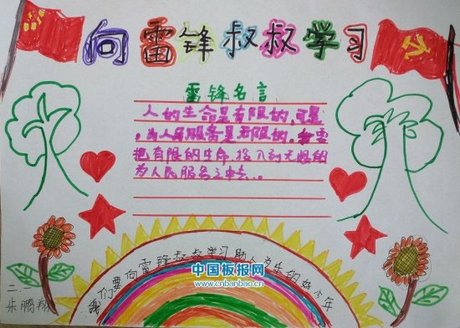 向雷锋叔叔学习
雷锋名言
人的生命是有限的，可是，
为人民服务是无限的，我要
把有限的生命，投入到无限的
为人民服务之中去..
我们要向雷锋叔叔学习助人为乐的好少年
中国板报网
www.cnbanbao.cn
二.一
朱鹏翔